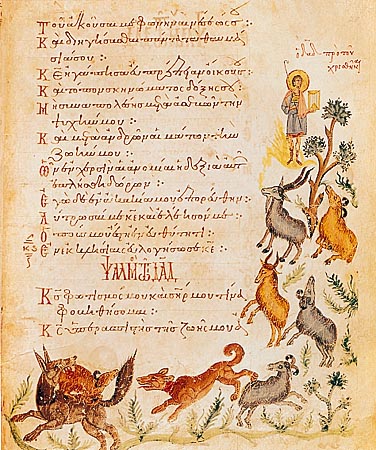 Τοῦ ἀκοῦσαί με φωνῆς αἰνέσεώς σου
Καὶ διηγήσασθαι πάντα τὰ θαυμά
σιά σου:
Κε ἠγάπησα εὐπρέπειαν οἴκου σου
Καὶ τόπον σκηνώματος δόξης σου:
Μὴ συναπολέσης μετὰ ἀσεβῶν τὴν
ψυχήν μου:
Καὶ μετὰ ἀνδρῶν αἱμάτων τὴν
ζωήν μου:
Ὧν ἐν χερσὶν αἱ ἀνομίαι ἡ δεξιὰ αὐτῶν
ἐπλήσθη δώρων:
Ἐγὼ δὲ ἐν ἀκακία μου ἐπορεύθην
Λύτρωσαί με καὶ ἐλέησόν με:
Ὁ πούς μου ἔστη ἐν εὐθύτητι
Ἐν ἐκκλησίαις εὐλογήσω σε κε:
ΨΑΛΜΟΣ ΤΩ ΔΑΔ
Κς φωτισμός μου καὶ σηρ μου τίνα
φοβηθήσομαι:
Κς ὑπερασπιστὴς τῆς ζωῆς μου